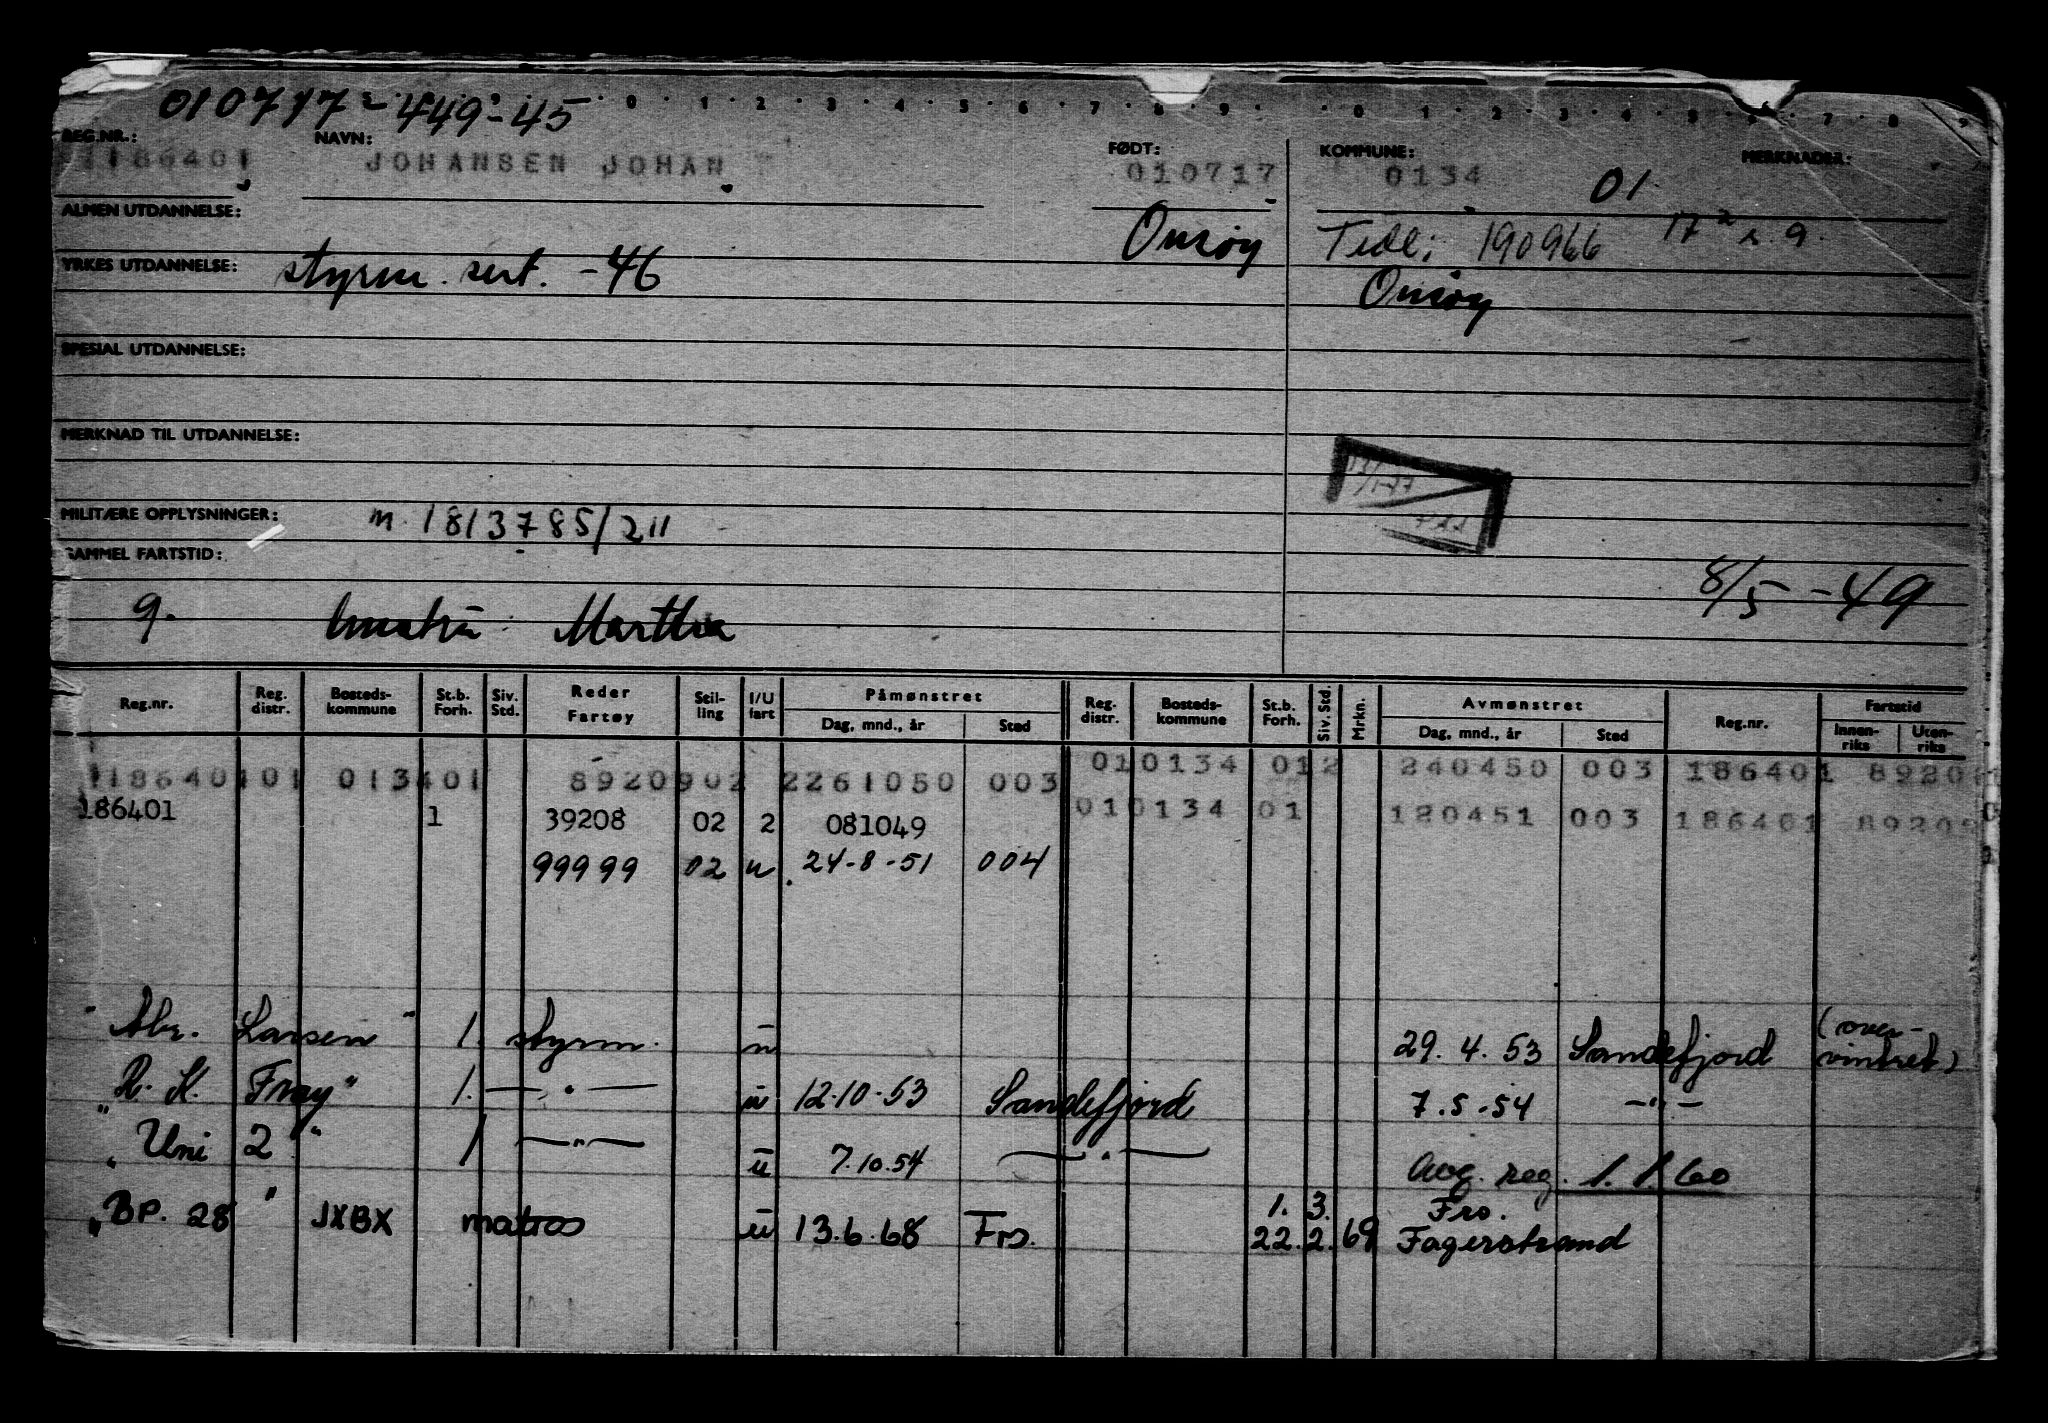 010717-449-45
0 1 2 3 4 5 6 7 8 9 0 1 2 3 4 5 6 7 8 9
REG.NR.: NAVN: FØDT: KOMMUNE: MERKNADER:
186401 JOHANSEN JOHAN 010717 0134 01
ALMEN UTDANNELSE: Onsøy Tidl: 190966 17
YRKES UTDANNELSE: styrm. sert. -46 Onsøy
SPESIAL UTDANNELSE:
MERKNAD TIL UTDANNELSE:
MILITÆRE OPPLYSNINGER: m. 1813785/211
GAMMEL FARTSTID:
8/5-49
9. Martha
Reg.nr. Reg. distr. Bosteds-kommune St.b. Forh. Siv. Std. Reder Fartøy Stil-ling I/U fart Påmønstret Dag, mnd., år Sted Reg. distr. Bosteds-kommune St.b. Forh. Siv. Std. Mrkn. Avmønstret Dag, mnd., år Sted Reg.nr. Fartstid Innen-riks Uten-riks
18640101 013401 8920902 2261050 003 010134 012 240450 003 186401 8920
186401 1 39208 02 2 081049 010134 01 120451 003 186401 8920
99999 02 u 24-8-51 004
"Abr. Larsen" 1. styrm. u 29.4.53 Sandefjord (over-vintret)
"R. K. Fray" 1. — " — u 12.10.53 Sandefjord 7.5.54 — " —
"Uni 2" 1 — " — u 7.10.54 — " — Avg. reg. 1.1.60
"BP. 28" JXBX matros u 13.6.68 Frs. 1. 3. Fro.
22.2.69 Fagerstrand